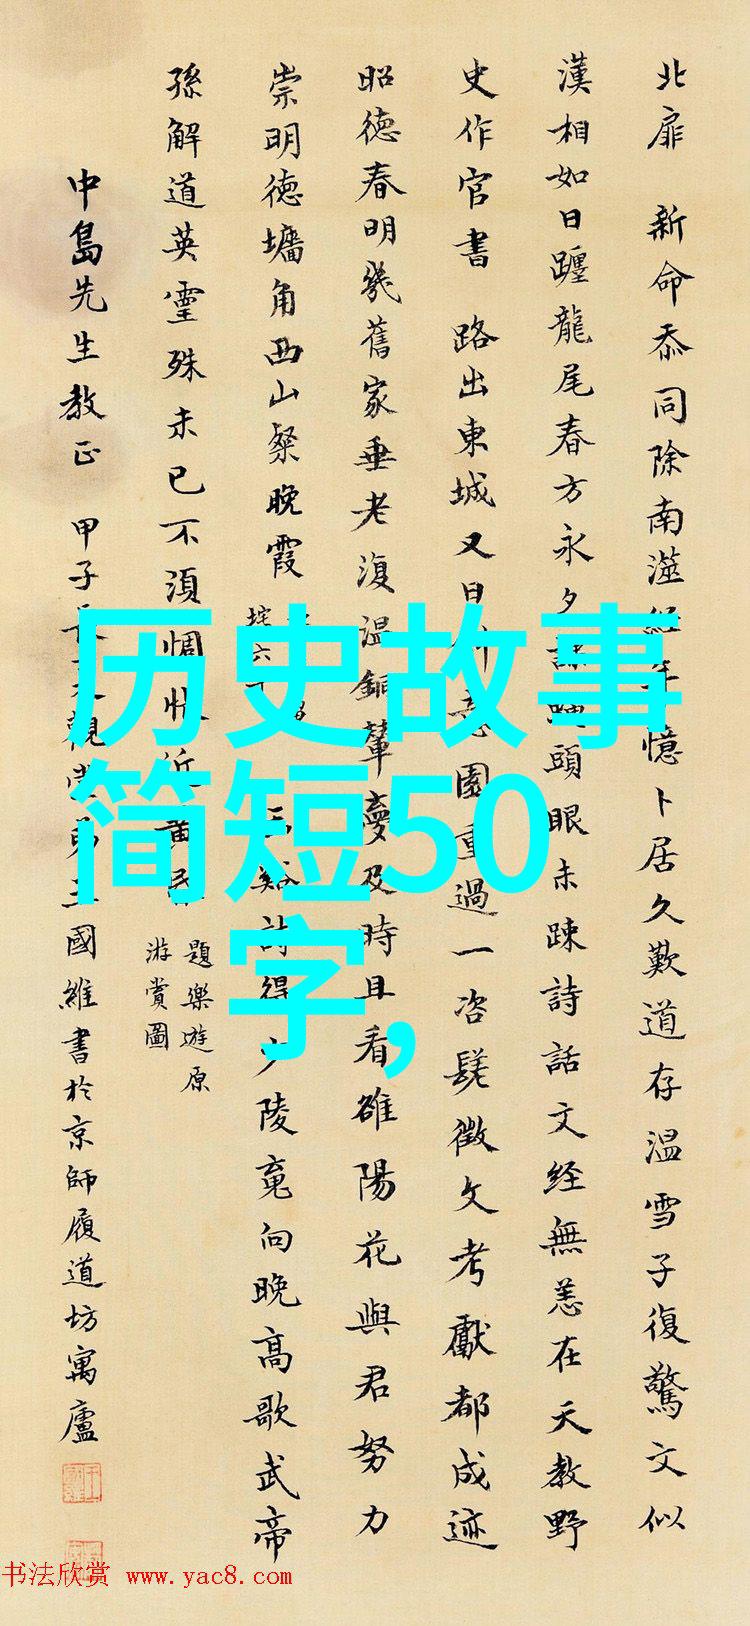 北扉 新命忝同除南滋經年憶卜居久歎道存温雪子復驚文似
漢相如日躔龍尾春方永夕詠頭眼未疎詩話文经無恙在天教野
史作官書 路出東城又日園重過一咨髦徵文考獻都成迹
昭德春明幾舊家垂老復温銅輦夢及時且看雒陽花與君努力
崇明德墉角西山粲晚霞
詩得少陵竟向晚高歌武帝
孫解道英靈殊未已不須惆悵近黄昏
題樂遊原
游賞圖
中島先生教正 甲子長夏觀堂弟王國維書於京師履道坊寓廬
历史故事
简短50
字,
书法欣赏 www.yac8.com